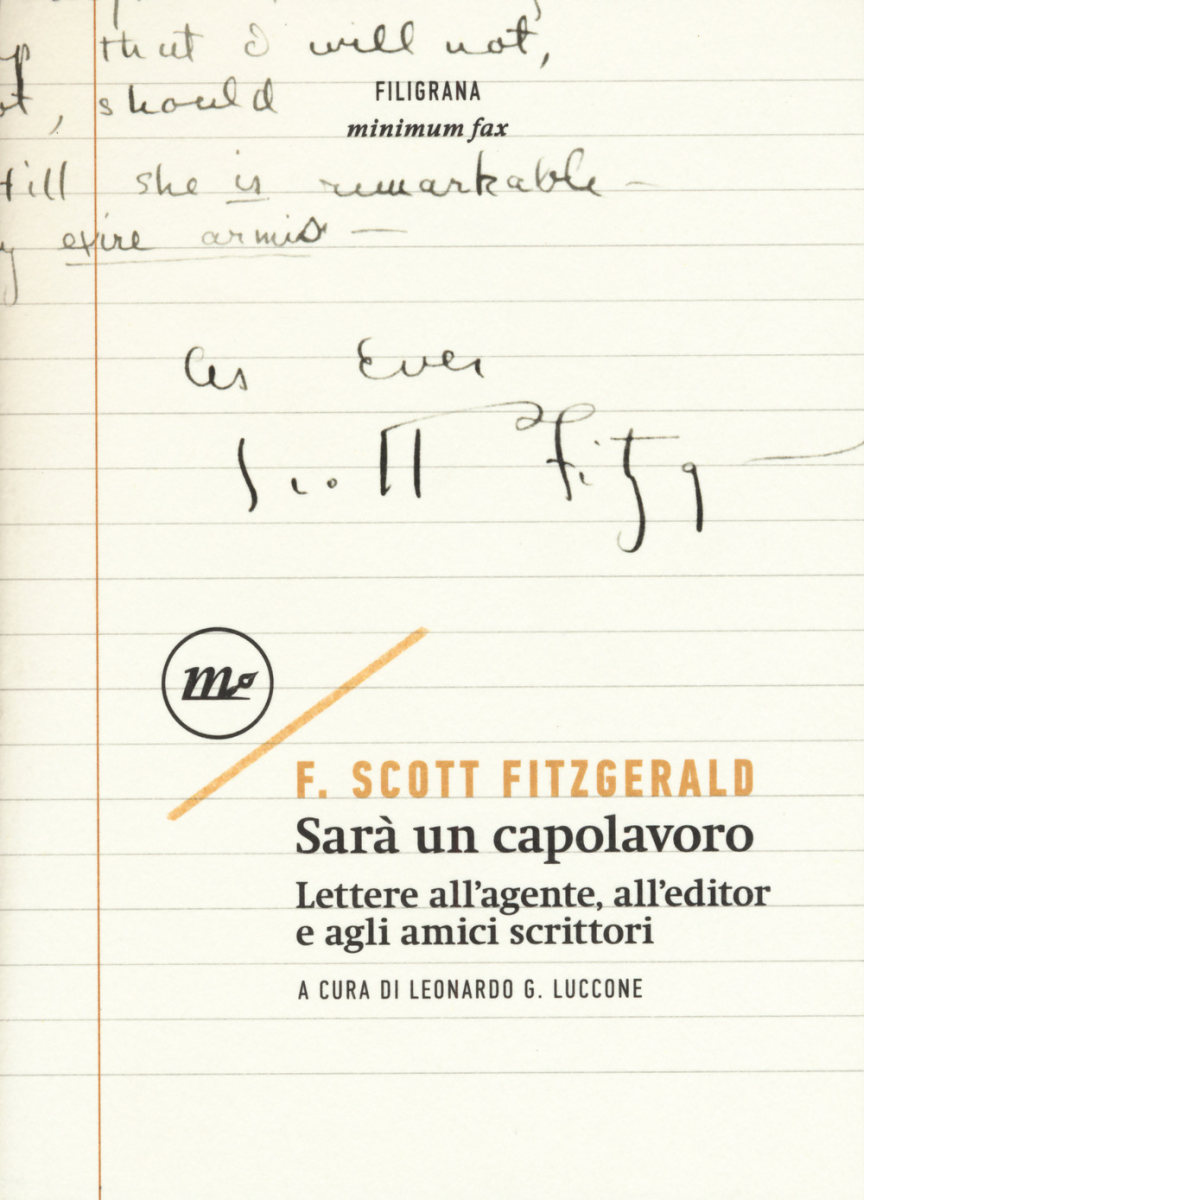 that I will not,
, should
FILIGRANA
minimum fax
till she is remarkable —
armis —
As Ever
Scott Fitzg
m
F. SCOTT FITZGERALD
Sarà un capolavoro
Lettere all'agente, all'editor
e agli amici scrittori
A CURA DI LEONARDO G. LUCCONE